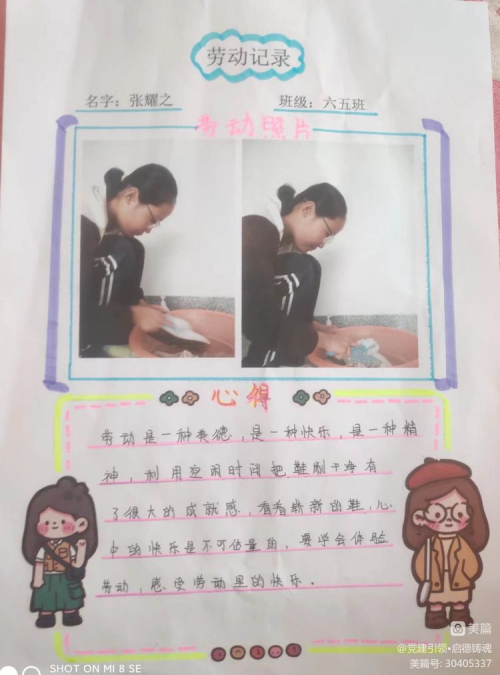 劳动记录
名字：张耀之
班级：六五班
劳动照片
心得
劳动是一种美德，是一种快乐，是一种精
神，利用空闲时间把鞋刷干净有
了很大的成就感，看着崭新的鞋，心
中的快乐是不可估量的，要学会体验
劳动，感受劳动里的快乐。
美篇
@党建引领•启德铸魂
美篇号: 30405337
SHOT ON MI 8 SE